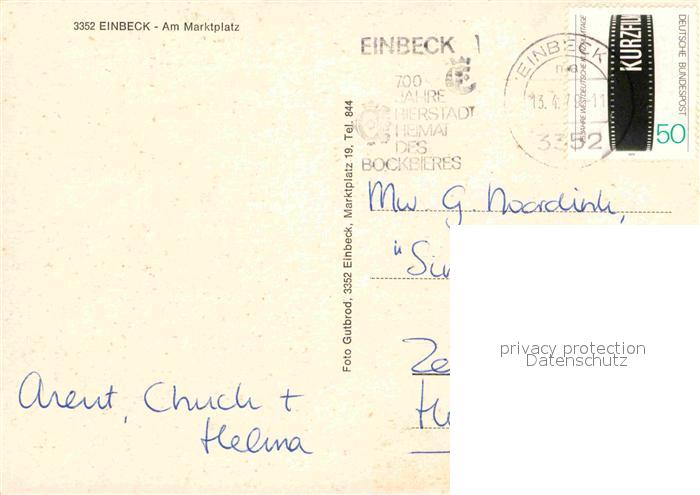 3352 EINBECK - Am Marktplatz
EINBECK 1
700
JAHRE
BIERSTADT
HEIMAT
DES
BOCKBIERES
EINBECK
13. 4. 7
3352
KURZFILM
DEUTSCHE BUNDESPOST
50
Foto Gutbrod, 3352 Einbeck, Marktplatz 19, Tel. 844
Mw. G. Noordink,
privacy protection
Datenschutz
Arent, Chuck +
Helma